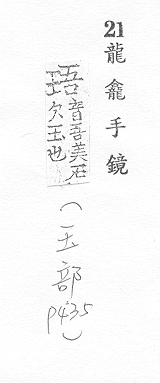 21龍龕手鏡
珸音吾美石
次玉也
(玉部
p435)